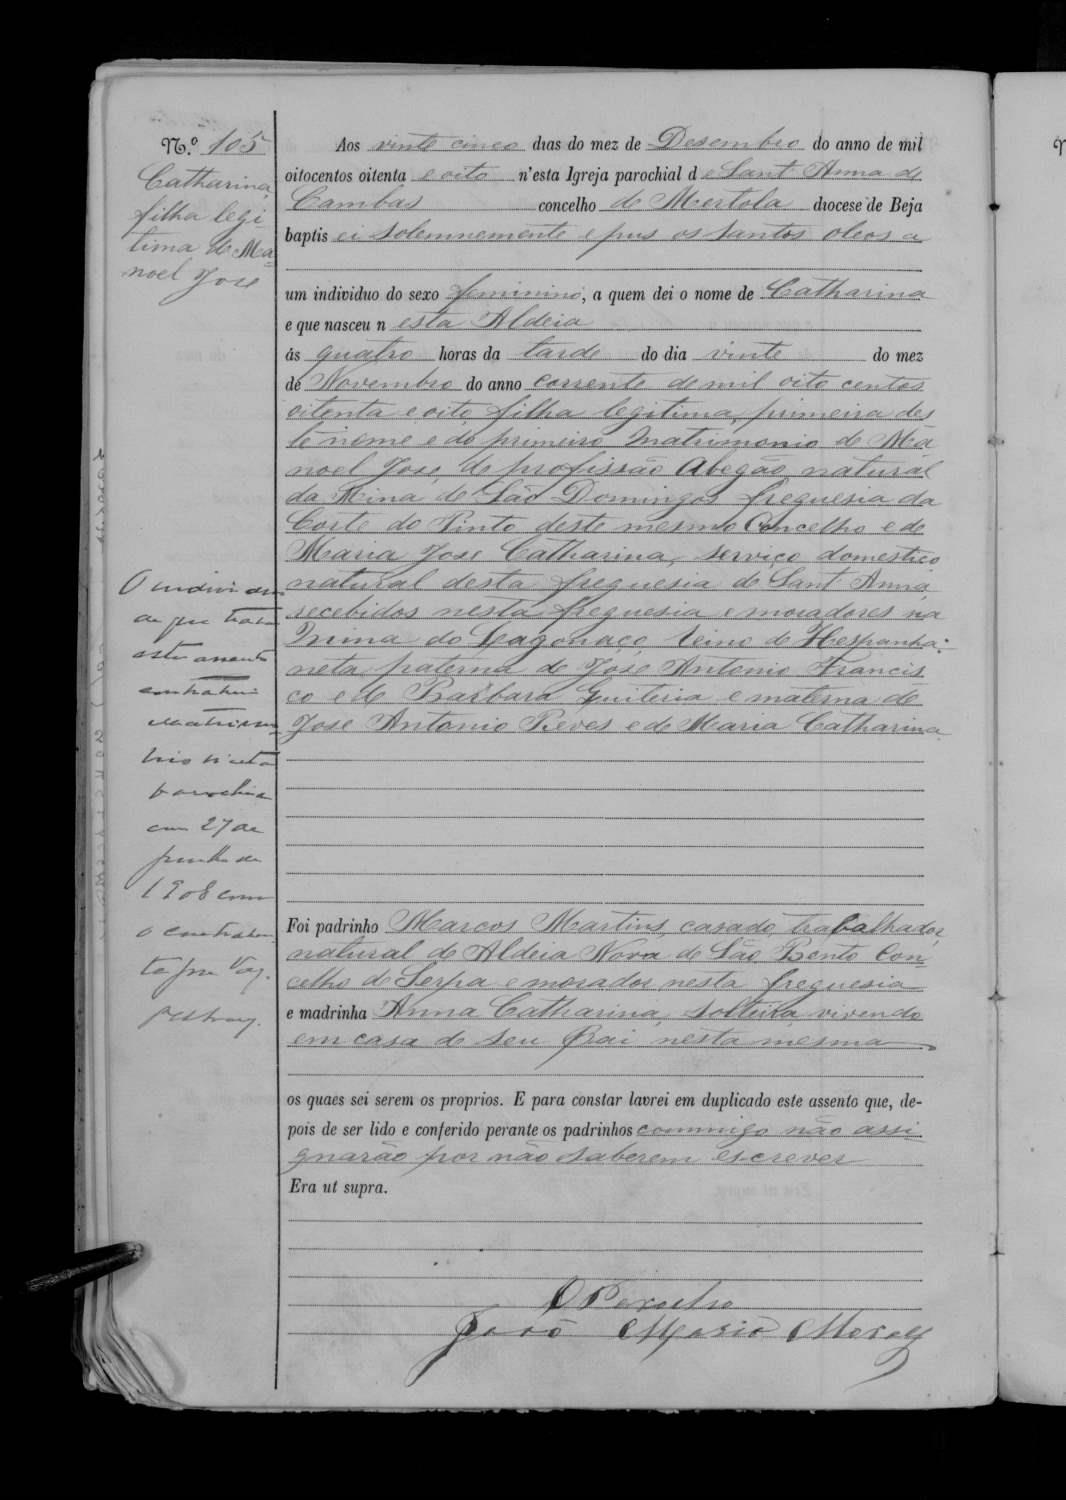 N.º 105
Catharina,
filha legi-
tima de Ma-
noel Jose
Aos vinte cinco dias do mez de Desembro do anno de mil
oitocentos oitenta e oito n'esta Igreja parochial de Sant Anna de
Cambas concelho de Mertola diocese de Beja
baptisei solemnemente e pus os santos oleos a
um individuo do sexo feminino, a quem dei o nome de Catharina
e que nasceu nesta Aldeia
ás quatro horas da tarde do dia vinte do mez
de Novembro do anno corrente de mil oito centos
oitenta e oito filha legitima, primeira des
te nome e do primeiro Matrimonio de Ma
noel Jose, de profissão Abegão, natural
da Mina de São Domingos freguesia da
Corte do Pinto deste mesmo Concelho e de
Maria Jose Catharina, serviço domestico
natural desta freguesia de Sant Anna,
recebidos nesta freguesia e moradores na
Mina do Lagonaço, reino de Hespanha:
neta paterna de Jose Antonio Francis
co e de Barbara Quiteria e materna de
Jose Antonio Reves e de Maria Catharina
O individuo
de que trata
este assento
contrahiu
matrimo-
nio n'esta
parochia
em 27 de
de
1908 com
o contrahen-
te
Foi padrinho Marcos Martins, casado, trabalhador,
natural de Aldeia Nova de São Bento Con-
celho de Serpa e morador nesta freguesia
e madrinha Anna Catharina, solteira, vivendo
em casa de seu Pai nesta mesma
os quaes sei serem os proprios. E para constar lavrei em duplicado este assento que, de-
pois de ser lido e conferido perante os padrinhos commigo não assi-
gnarão por não saberem escrever
Era ut supra.
O Parocho
João Maria